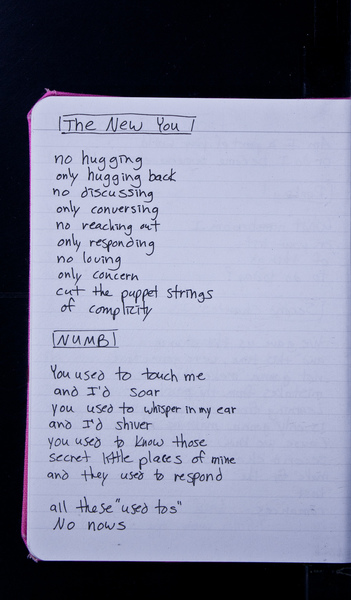 The New You
no hugging
only hugging back
no discussing
only conversing
no reaching out
only responding
no loving
only concern
cut the puppet strings
of complicity
NUMB
You used to touch me
and I'd soar
you used to whisper in my ear
and I'd shiver
you used to know those
secret little places of mine
and they used to respond
all these "used tos"
No nows